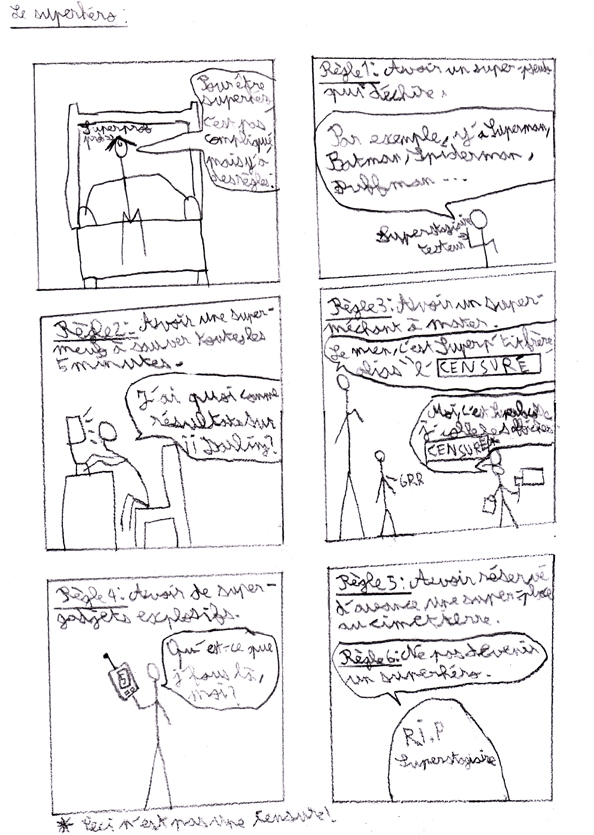 Le superhéro :
Pour être
superhéro,
c'est pas
compliqué,
mais y'a
des règles!
Superpros
Règle 1: Avoir un super-pseudo
qui déchire.
Par exemple, y'a Superman,
Batman, Spiderman,
Duffman ...
Superstagiaire
testeur
Règle 2: Avoir une super-
meuf à sauver toutes les
5 minutes.
J'ai quoi comme
résultats sur
Règle 3: Avoir un super-
méchant à mater.
Le mien, c'est Superp'titfrère
alias "l' CENSURÉ
Moi, c'est
j'colle les affiches
CENSURÉ*
GRR
Règle 4: Avoir de super-
gadgets explosifs.
Qu'est-ce que
j'fous là,
moi?
3
Règle 5: Avoir réservé
d'avance une super-place
au cimetierre.
Règle 6: Ne pas devenir
un superhéro.
R.I.P
Superstagiaire
* Ceci n'est pas une censure!